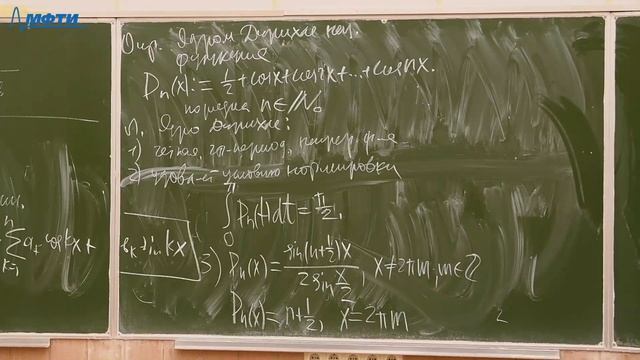 МФТИ
Опр. Ядром Дирихле наз.
функция
Dₙ(x) := 1/2 + cos x + cos 2x + ... + cos nx.
порядка n ∈ ℕ₀
Л. Ядро Дирихле:
1) чётная, 2π-период., непрер. ф-я
2) удовл-ет условию нормировки
∫₀^π Dₙ(t)dt = π/2,
3) Dₙ(x) = sin(n+1/2)x / 2 sin x/2, x ≠ 2πm, m ∈ ℤ
Dₙ(x) = n + 1/2, x = 2πm
∑ₖ₌₁ⁿ aₖ cos kx +
bₖ sin kx